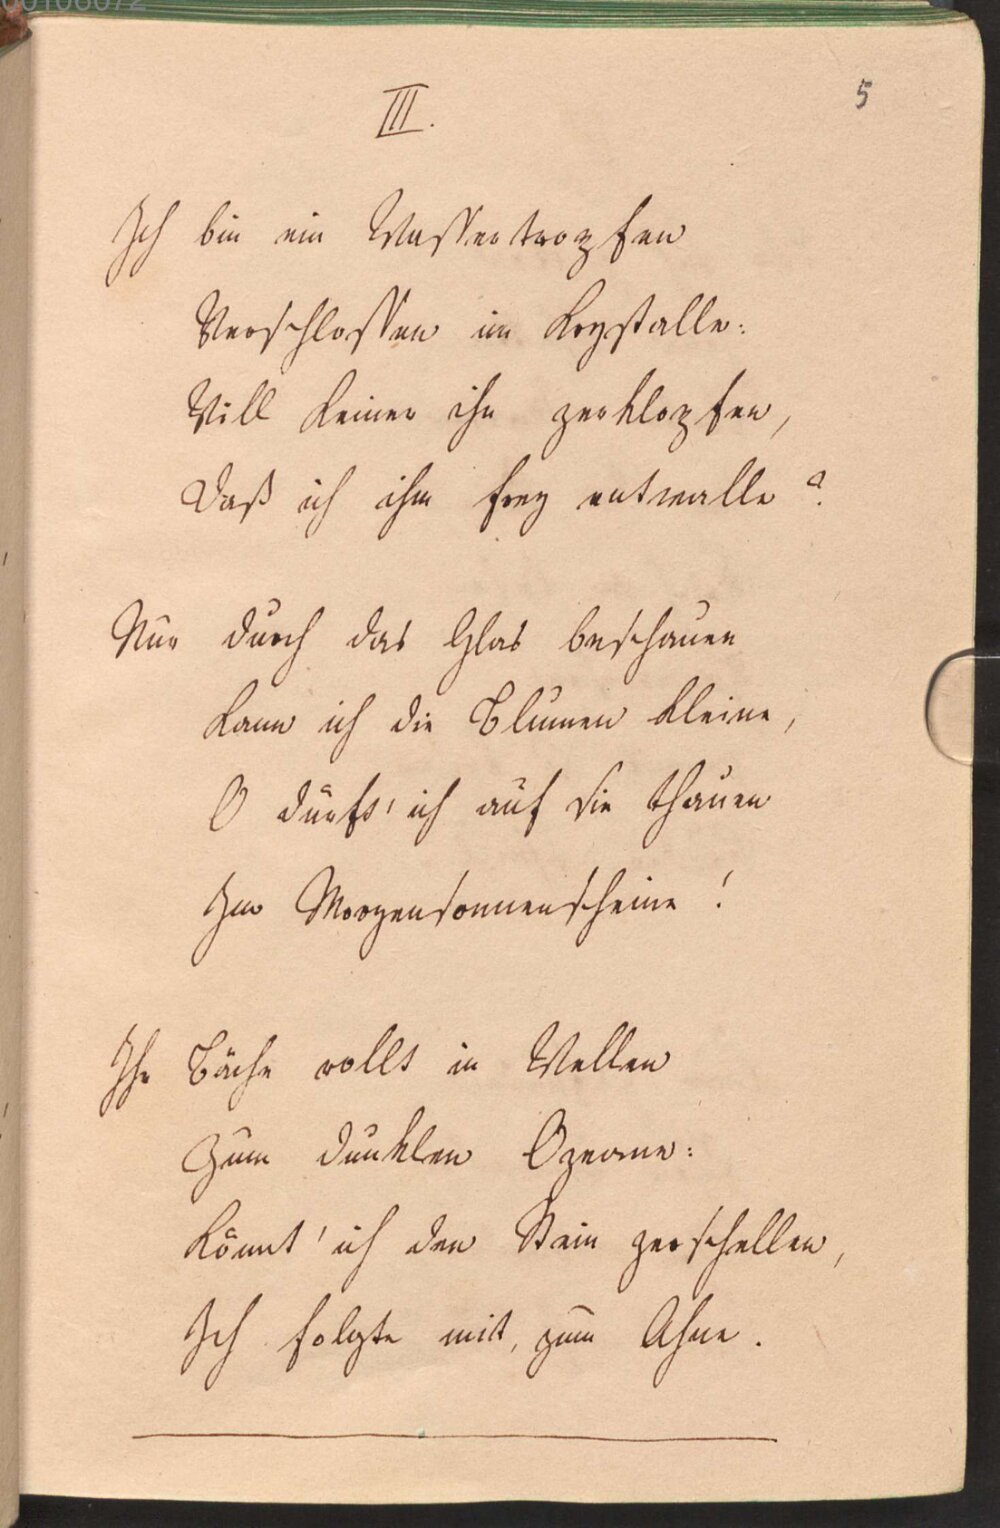 00106072
5
III.
Ich bin ein Wassertropfen
Verschlossen im Krystalle:
Will keiner ihn zerklopfen,
Daß ich ihm frey entwalle?
Nur durch das Glas beschauen
Kann ich die Blumen kleine,
O dürft' ich auf sie thauen
Im Morgensonnenscheine!
Ihr Bäche rollt in Wellen
Zum dunklen Ozeane:
Könnt' ich den Stein zerschellen,
Ich folgte mit, zum Ahne.